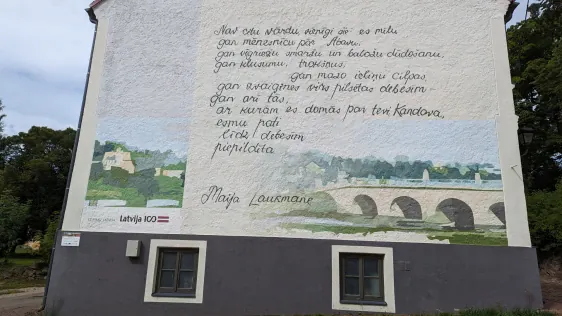 Nav citu vārdu, vienīgi šis es mīlu
gan mēnesnīcu pār Abavu,
gan vīgriežu smaržu un baložu dūdošanu,
gan klusumu, trokšņus,
gan mazo ieliņu cilpas,
gan zvaigznes virs pilsētas debesīm -
gan arī tās,
ar kurām es domās par tevi Kandava,
esmu pati
līdz debesīm
piepildīta
Maija Laukmane
Latvija 100